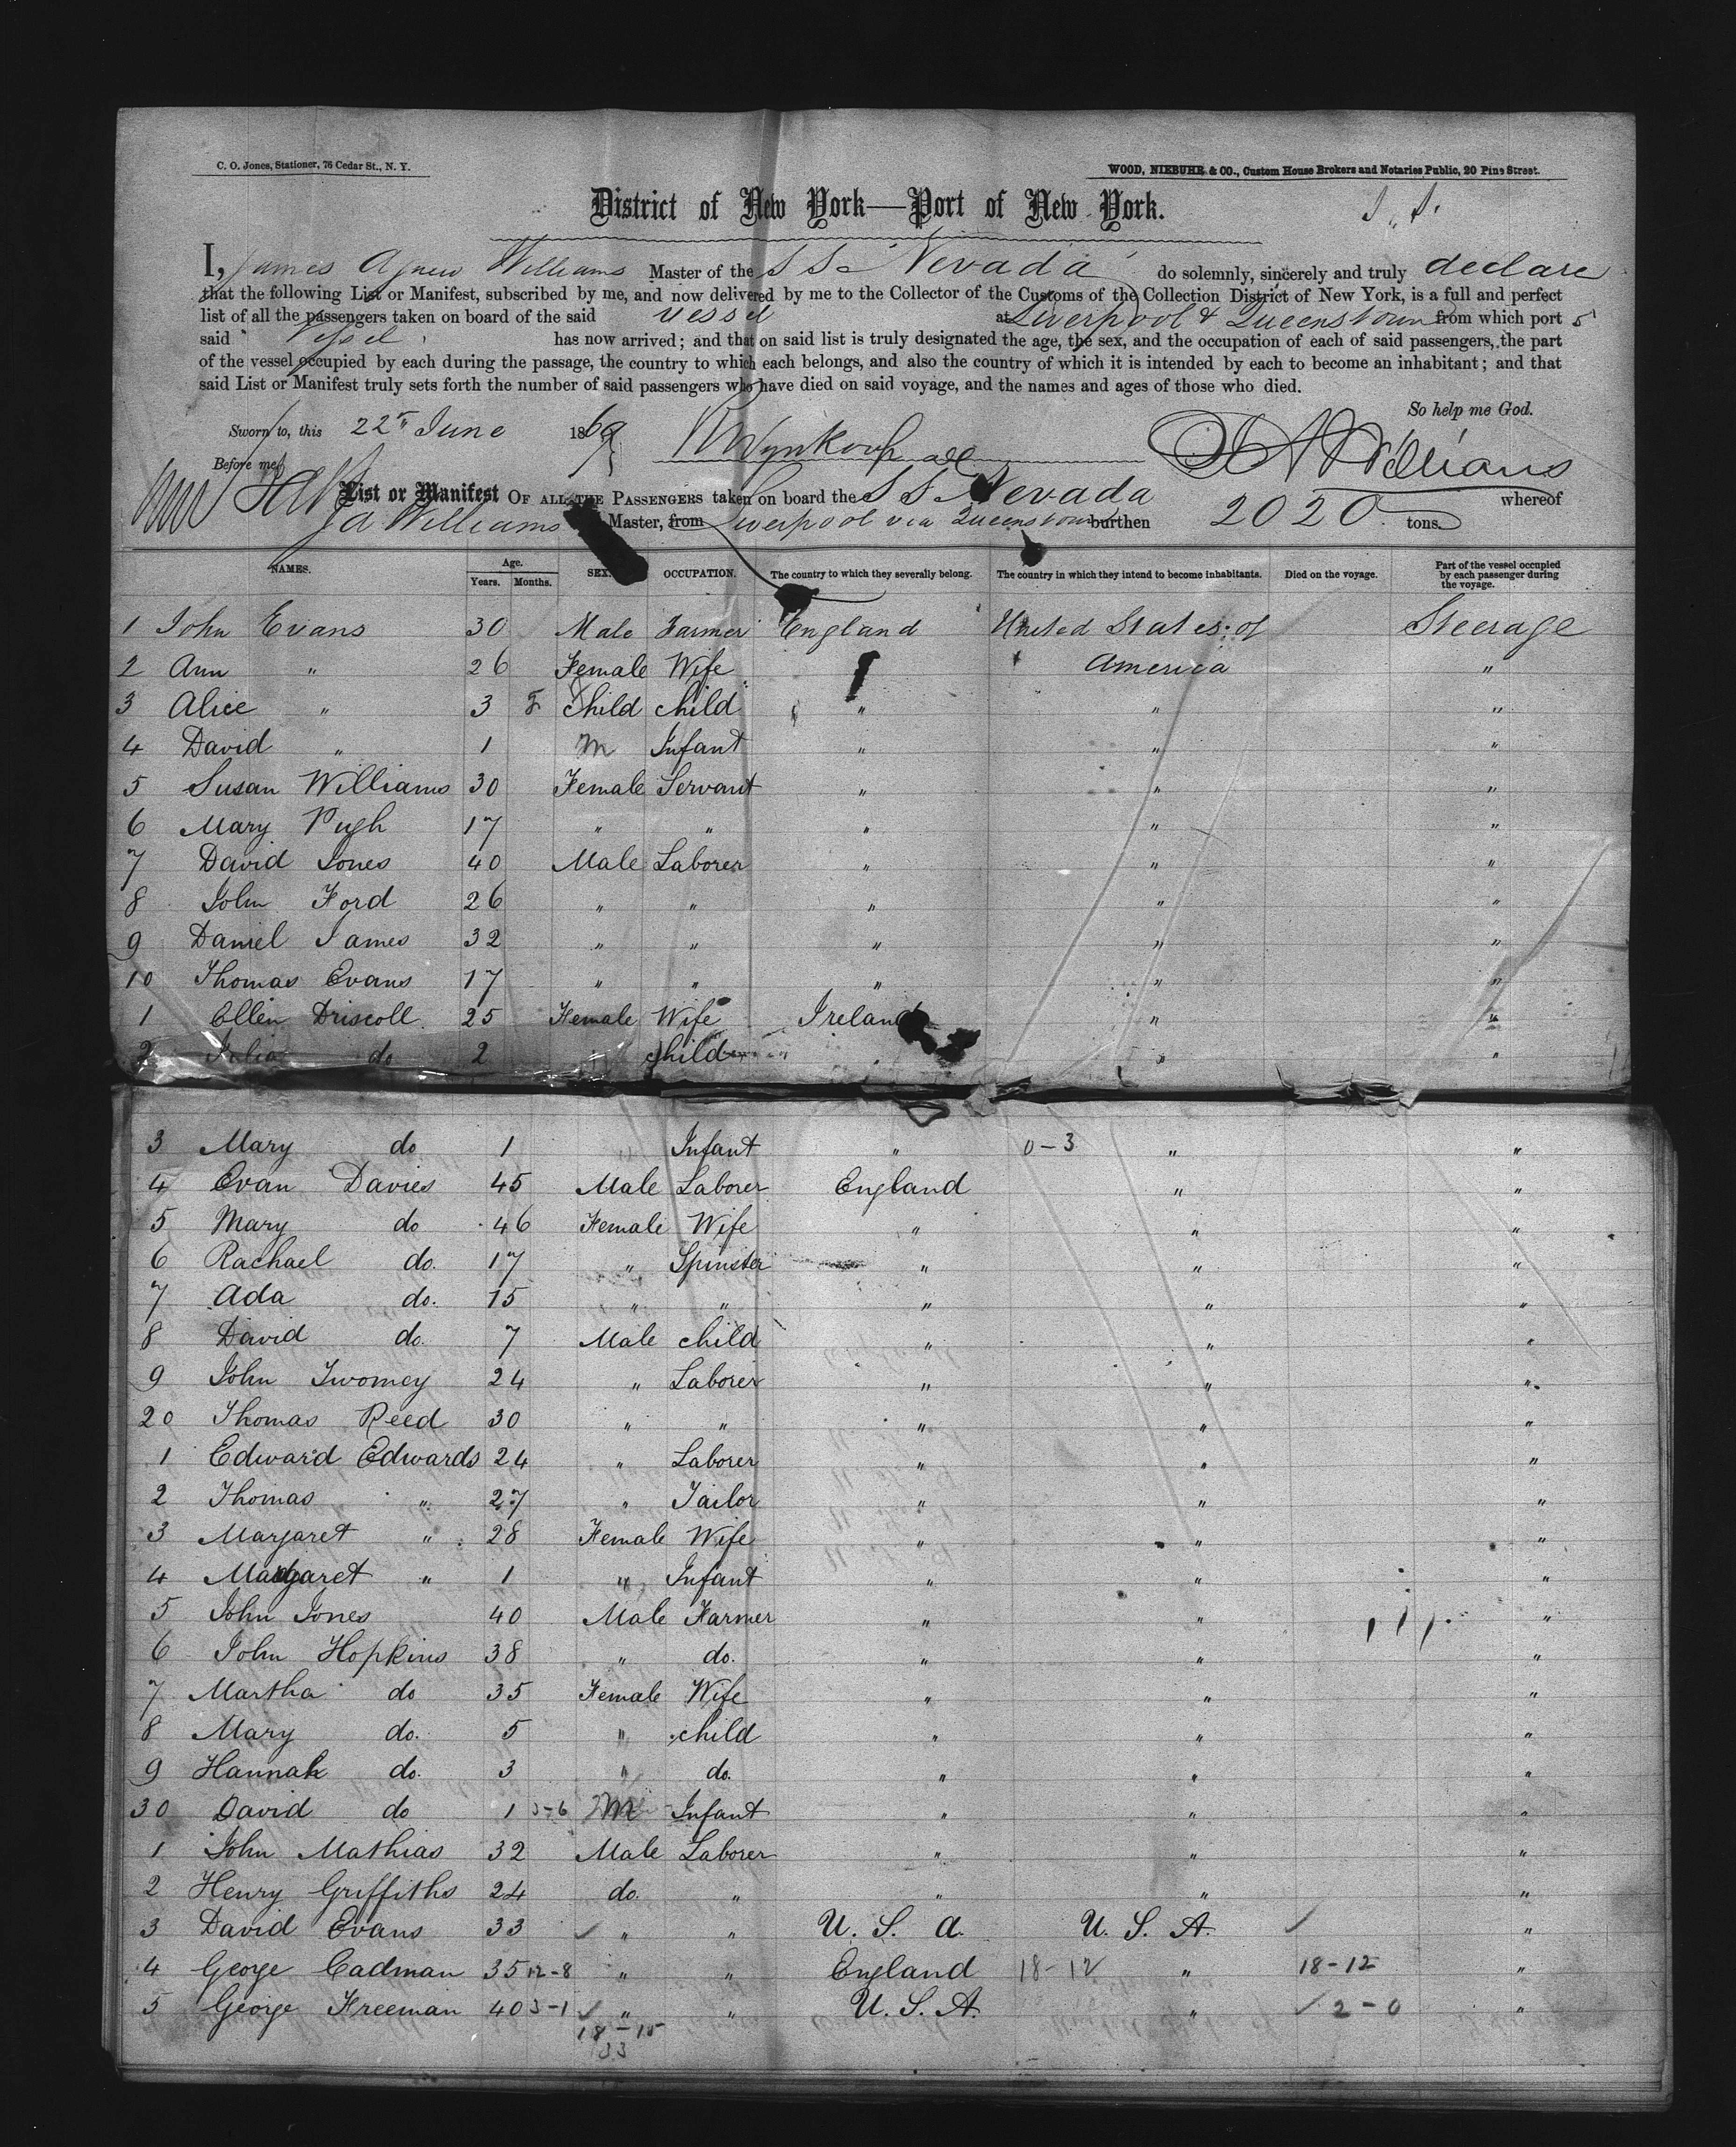 C. O. Jones, Stationer, 76 Cedar St., N. Y.
WOOD, NIEBUHR & CO., Custom House Brokers and Notaries Public, 20 Pine Street.
District of New York—Port of New York.
I, James Agnew Williams Master of the S S Nevada do solemnly, sincerely and truly declare
that the following List or Manifest, subscribed by me, and now delivered by me to the Collector of the Customs of the Collection District of New York, is a full and perfect
list of all the passengers taken on board of the said vessel at Liverpool & Queenstown from which port s
said Vessel has now arrived; and that on said list is truly designated the age, the sex, and the occupation of each of said passengers, the part
of the vessel occupied by each during the passage, the country to which each belongs, and also the country of which it is intended by each to become an inhabitant; and that
said List or Manifest truly sets forth the number of said passengers who have died on said voyage, and the names and ages of those who died.
So help me God.
Sworn to, this 22 June 1869
Before me
Wynkoop
J A Williams
List or Manifest OF ALL THE PASSENGERS taken on board the S S Nevada whereof
J A Williams Master, from Liverpool via Queenstown burthen 2020 tons.
NAMES. Age. Years. Months. SEX. OCCUPATION. The country to which they severally belong. The country in which they intend to become inhabitants. Died on the voyage. Part of the vessel occupied by each passenger during the voyage.
1 John Evans 30 Male Farmer England United States of Steerage
2 Ann " 26 Female Wife America "
3 Alice " 3 Child child " " "
4 David " 1 M Infant " " "
5 Susan Williams 30 Female Servant " " "
6 Mary Pugh 17 " " " " "
7 David Jones 40 Male Laborer " " "
8 John Ford 26 " " " " "
9 Daniel James 32 " " " " "
10 Thomas Evans 17 " " " " "
1 Ellen Driscoll 25 Female Wife Ireland " "
2 Julia do 2 child " " "
3 Mary do 1 " Infant " 0-3 " "
4 Evan Davies 45 Male Laborer England " "
5 Mary do 46 Female Wife " " "
6 Rachael do. 17 " Spinster " " "
7 Ada do. 15 " " " " "
8 David do. 7 Male child " " "
9 John Twomey 24 " Laborer " " "
20 Thomas Reed 30 " " " " "
1 Edward Edwards 24 " Laborer " " "
2 Thomas " 27 " Tailor " " "
3 Margaret " 28 Female Wife " " "
4 Margaret " 1 " Infant " " "
5 John Jones 40 Male Farmer " " "
6 John Hopkins 38 " do. " " "
7 Martha do 35 Female Wife " " "
8 Mary do. 5 " child " " "
9 Hannah do. 3 " do. " " "
30 David do 1 M Infant " " "
1 John Mathias 32 Male Laborer " " "
2 Henry Griffiths 24 do. " " " "
3 David Evans 33 " " U. S. A. U. S. A. "
4 George Cadman 35 12-8 " " England 18-12 " 18-12 "
5 George Freeman 40 3-1 " " U. S. A. " 2-0 "
18-15
33